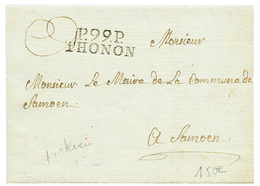 P.99.P.
THONON
Monsieur
Monsieur Le Maire de La Commune de
Samoen
A Samoen
150€